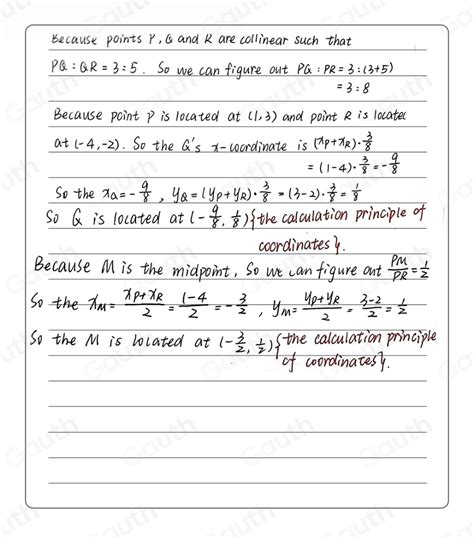 Because points P, Q and R are collinear such that
PQ : QR = 3 : 5 . So we can figure out PQ : PR = 3 : (3+5)
= 3 : 8
Because point P is located at (1, 3) and point R is located
at (-4, -2). So the Q's x-coordinate is (xP+xR)·3/8
= (1-4)·3/8 = -9/8
So the xQ = -9/8 , yQ = (yP+yR)·3/8 = (3-2)·3/8 = 1/8
So Q is located at (-9/8, 1/8) {the calculation principle of
coordinates}.
Because M is the midpoint, So we can figure out PM/PR = 1/2
So the xM = (xP+xR)/2 = (1-4)/2 = -3/2 , yM = (yP+yR)/2 = (3-2)/2 = 1/2
So the M is located at (-3/2, 1/2) {the calculation principle
of coordinates}.
Gauth